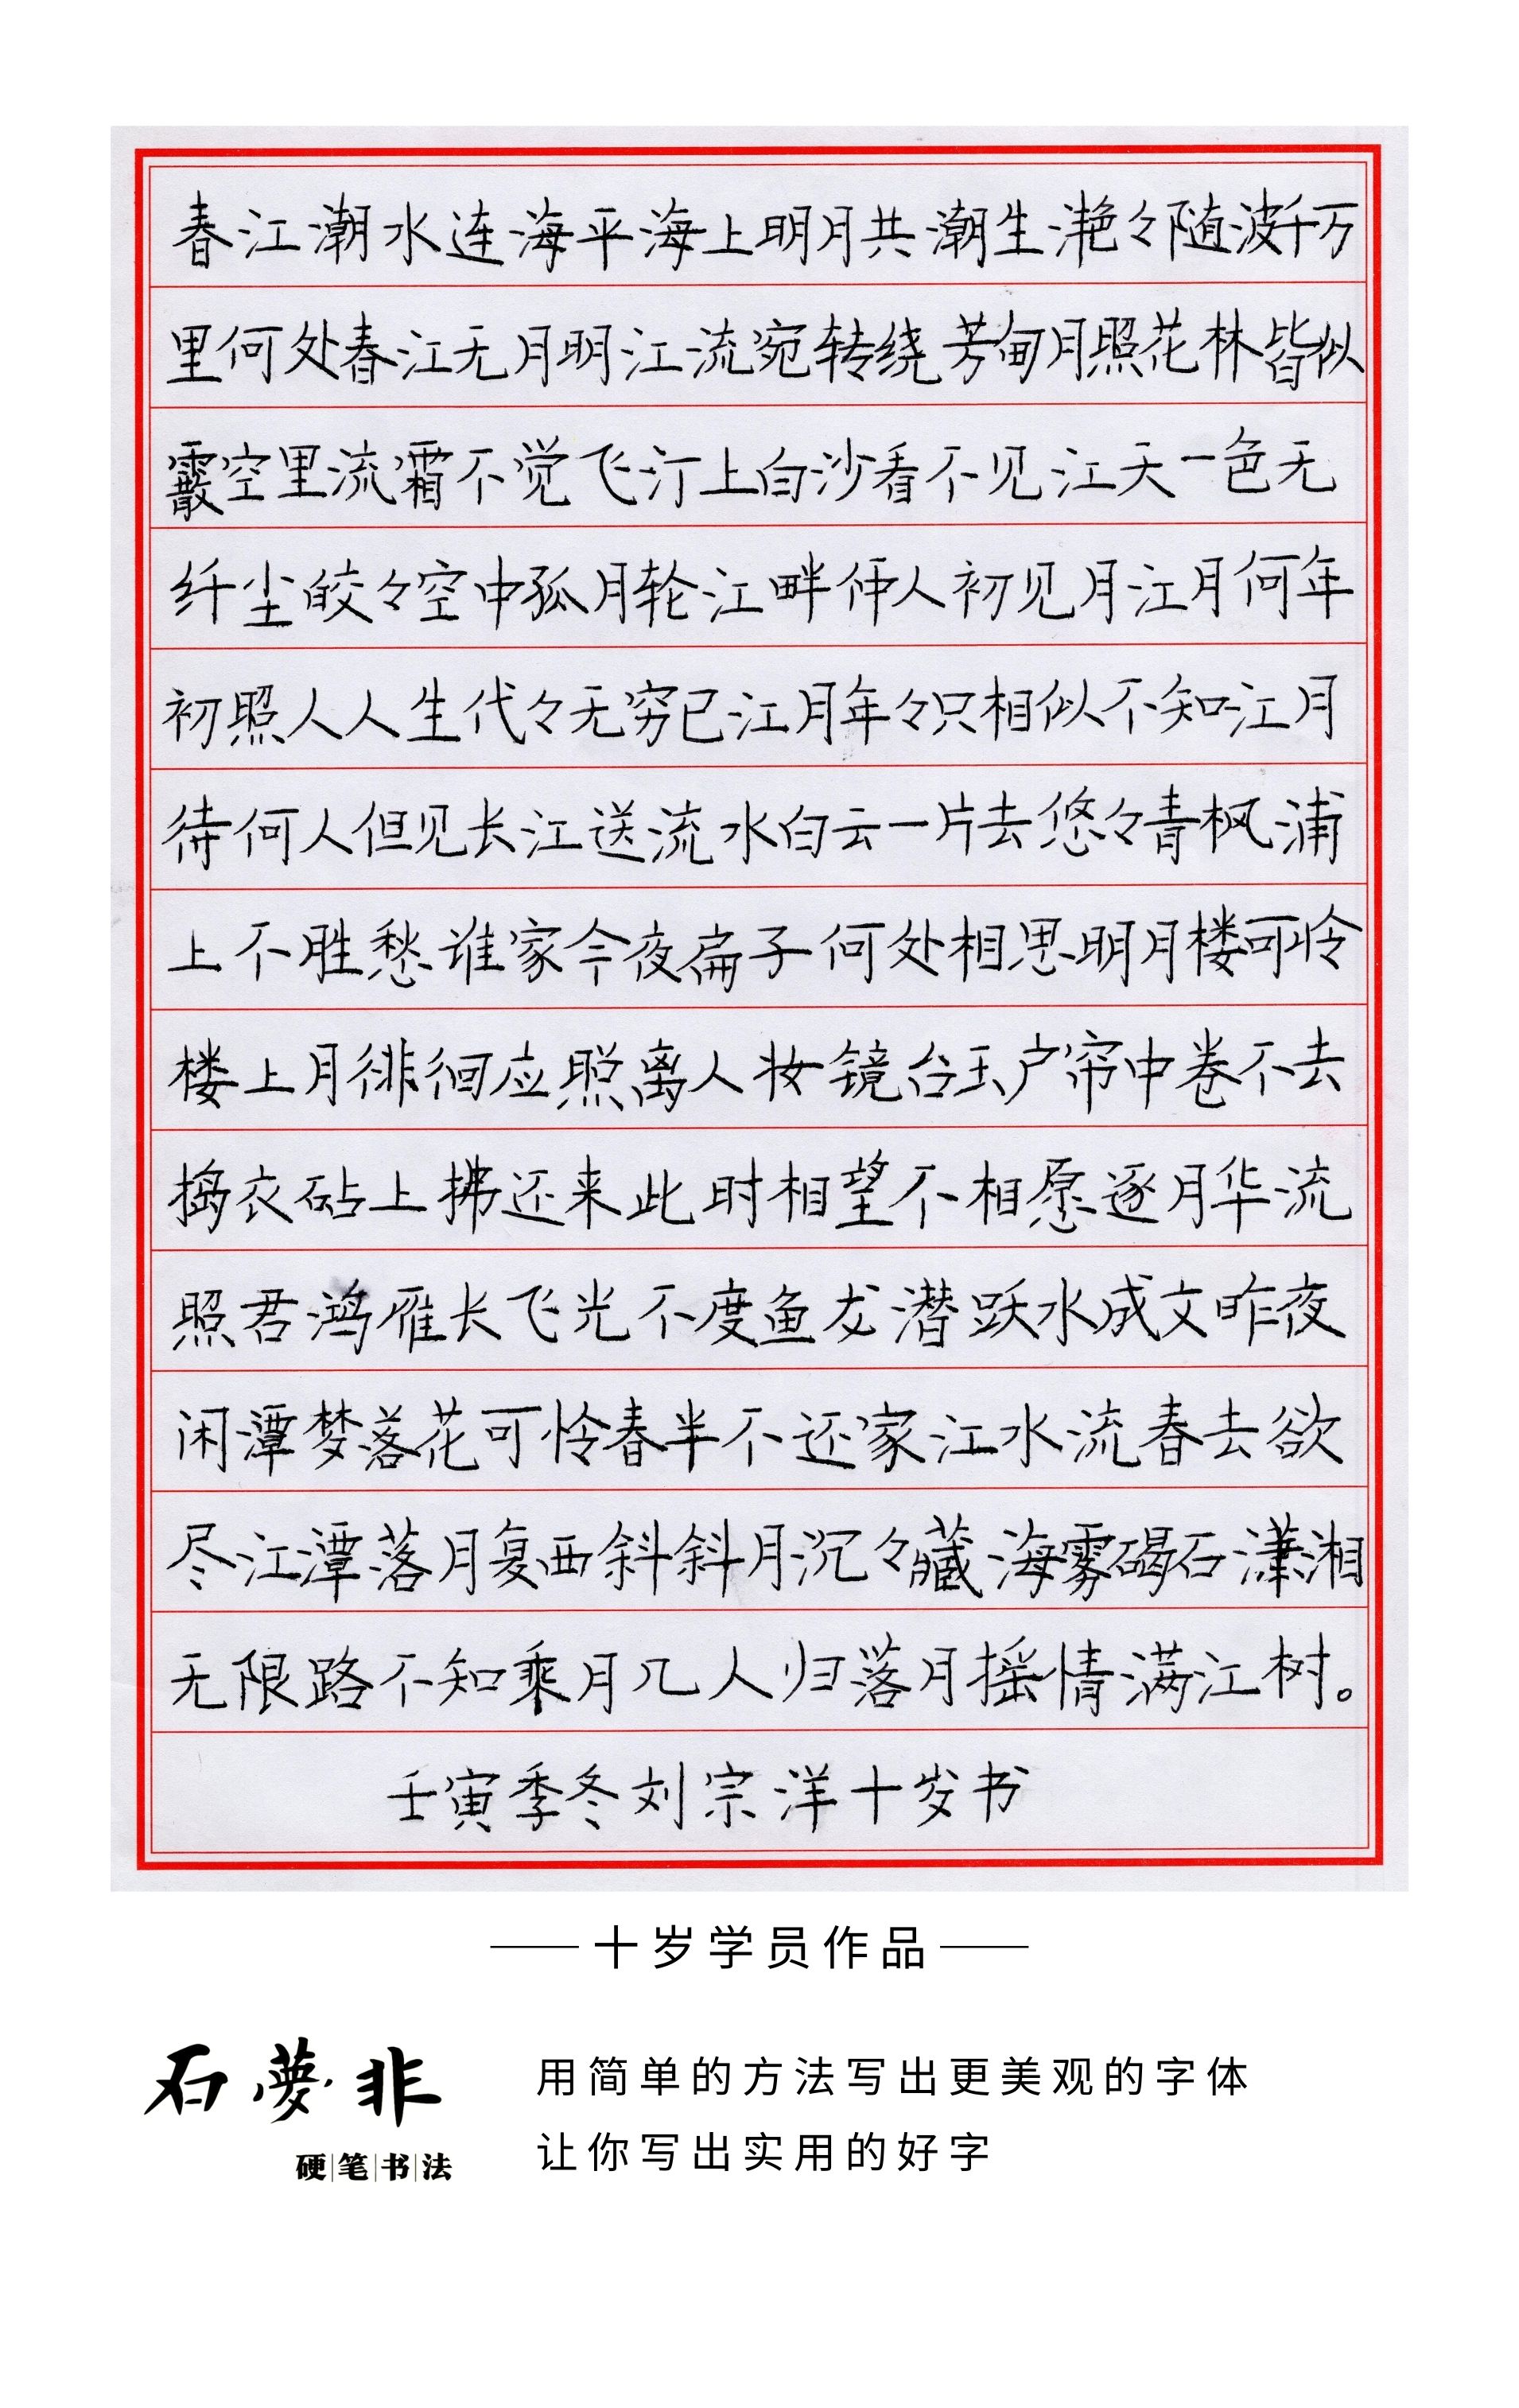 春江潮水连海平海上明月共潮生滟々随波千万
里何处春江无月明江流宛转绕芳甸月照花林皆似
霰空里流霜不觉飞汀上白沙看不见江天一色无
纤尘皎々空中孤月轮江畔何人初见月江月何年
初照人人生代々无穷已江月年々只相似不知江月
待何人但见长江送流水白云一片去悠々青枫浦
上不胜愁谁家今夜扁子何处相思明月楼可怜
楼上月徘徊应照离人妆镜台玉户帘中卷不去
捣衣砧上拂还来此时相望不相愿逐月华流
照君鸿雁长飞光不度鱼龙潜跃水成文昨夜
闲潭梦落花可怜春半不还家江水流春去欲
尽江潭落月复西斜斜月沉々藏海雾碣石潇湘
无限路不知乘月几人归落月摇情满江树。
壬寅季冬刘宗洋十岁书
十岁学员作品
石夢非
硬笔书法
用简单的方法写出更美观的字体
让你写出实用的好字